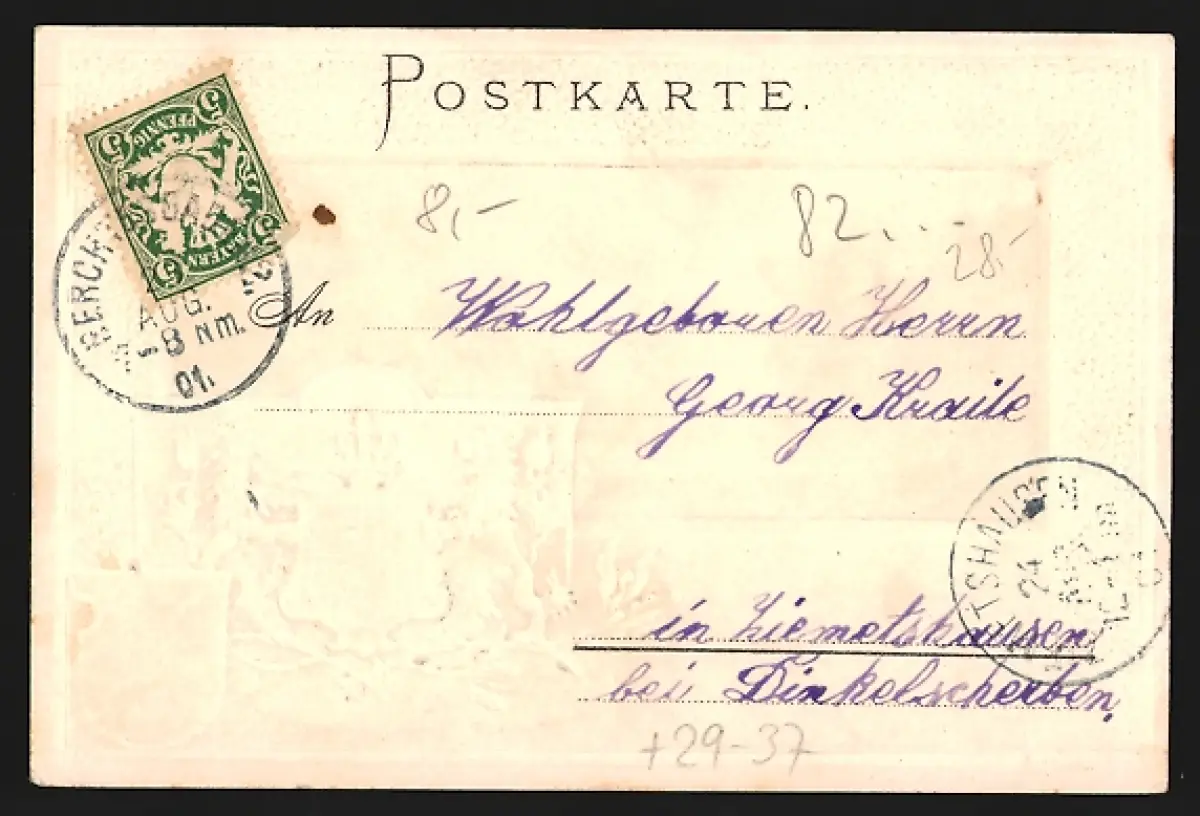 POSTKARTE.
5 5
PFENNIG
BAYERN
5 5
BERCH
AUG.
-8 Nm.
01.
8,-
82...
28.-
An Wohlgeboren Herrn
Georg Kraile
TSHAUSEN
24
in Ziemetshausen
bei Dinkelscherben,
+29-37